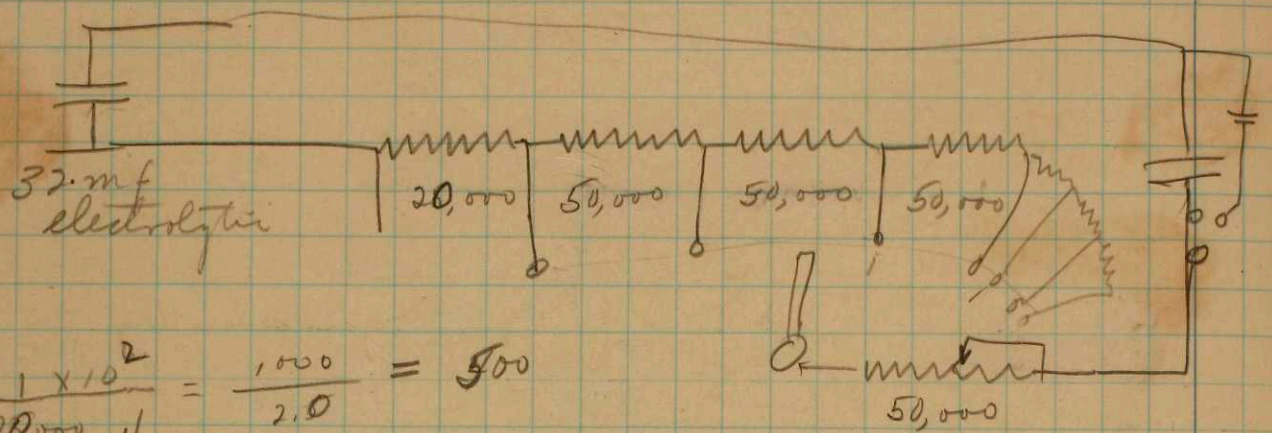 32. mf
electrolytic
20,000 50,000 50,000 50,000
1 x 10² = 1000 = 500
2.0
50,000